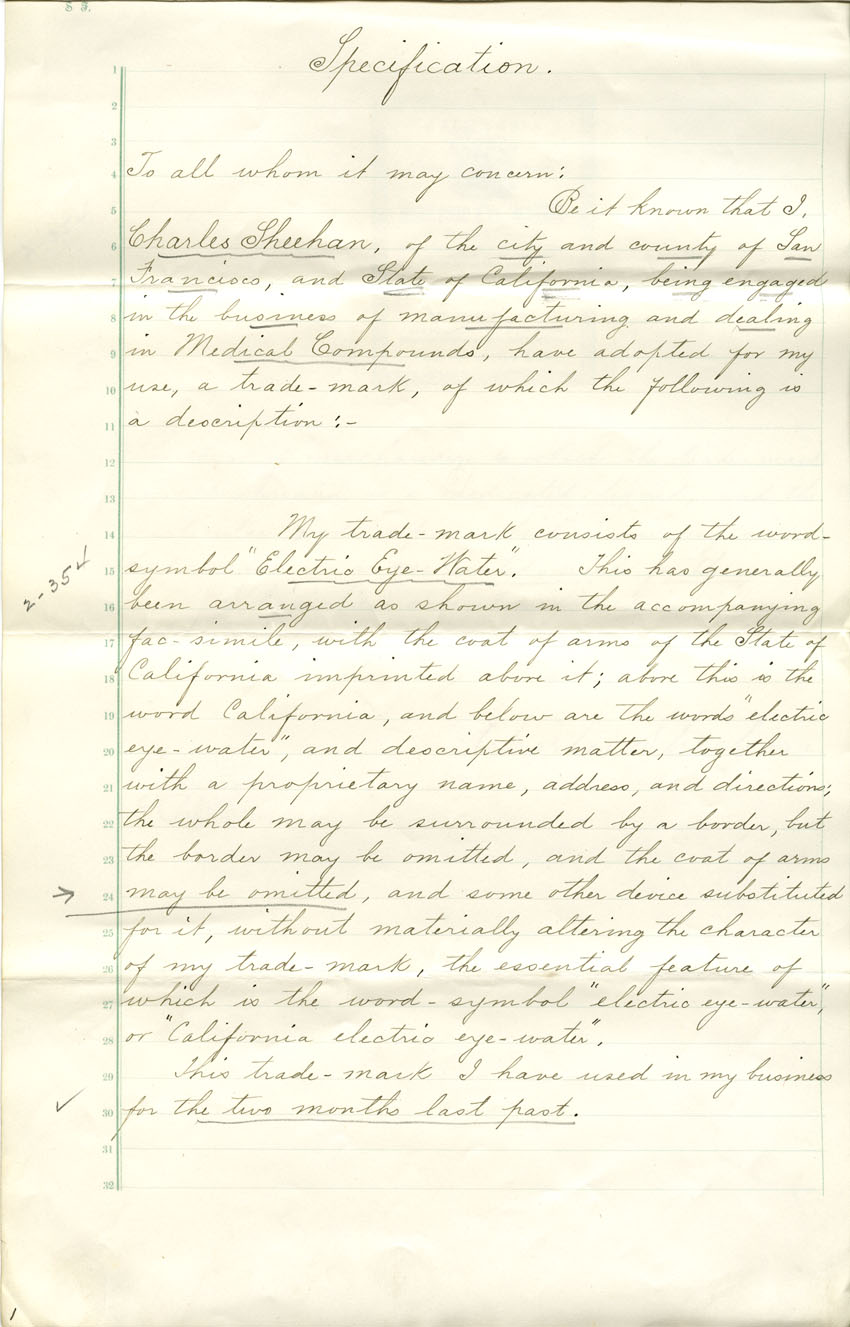 Specification.
1
2
3
4 To all whom it may concern:
5 Be it known that I,
6 Charles Sheehan, of the city and county of San
7 Francisco, and State of California, being engaged
8 in the business of manufacturing and dealing
9 in Medical Compounds, have adopted for my
10 use, a trade-mark, of which the following is
11 a description:-
12
13
14 My trade-mark consists of the word-
2-35✓
15 symbol "Electric Eye-Water". This has generally
16 been arranged as shown in the accompanying
17 fac-simile, with the coat of arms of the State of
18 California imprinted above it; above this is the
19 word California, and below are the words "electric
20 eye-water", and descriptive matter, together
21 with a proprietary name, address, and directions;
22 the whole may be surrounded by a border, but
23 the border may be omitted, and the coat of arms
24 may be omitted, and some other device substituted
25 for it, without materially altering the character
26 of my trade-mark, the essential feature of
27 which is the word-symbol "electric eye-water",
28 or "California electric eye-water".
29 This trade-mark I have used in my business
30 for the two months last past.
31
32
1